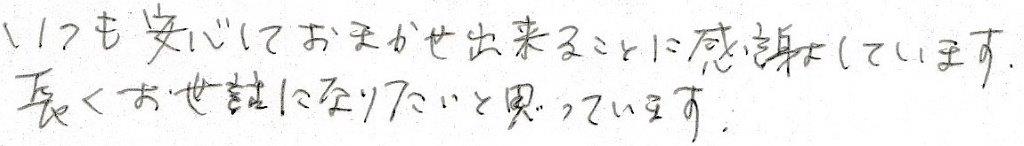 いつも安心しておまかせ出来ることに感謝しています.
長くお世話になりたいと思っています.